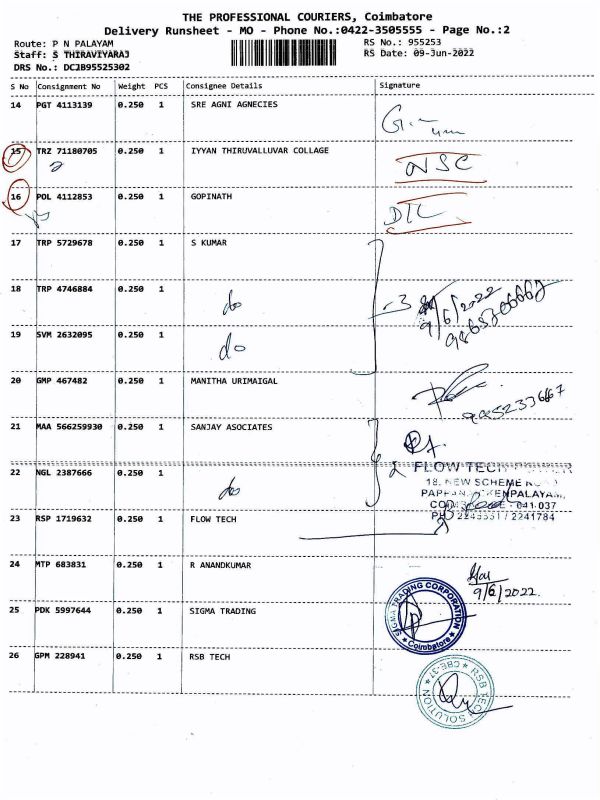 THE PROFESSIONAL COURIERS, Coimbatore
Delivery Runsheet - MO - Phone No.:0422-3505555 - Page No.:2
Route: P N PALAYAM
RS No.: 955253
Staff: S THIRAVIYARAJ
RS Date: 09-Jun-2022
DRS No.: DCJB95525302
S No Consignment No Weight PCS Consignee Details Signature
14 PGT 4113139 0.250 1 SRE AGNI AGNECIES
15 TRZ 71180705 0.250 1 IYYAN THIRUVALLUVAR COLLAGE
NSC
16 POL 4112853 0.250 1 GOPINATH
DTC
17 TRP 5729678 0.250 1 S KUMAR
18 TRP 4746884 0.250 1 do
3
9/6/2022
19 SVM 2632095 0.250 1 do
20 GMP 467482 0.250 1 MANITHA URIMAIGAL
21 MAA 566259930 0.250 1 SANJAY ASOCIATES
22 NGL 2387666 0.250 1 do
FLOW TECH
18. NEW SCHEME
23 RSP 1719632 0.250 1 FLOW TECH
24 MTP 683831 0.250 1 R ANANDKUMAR
9/6/2022
25 PDK 5997644 0.250 1 SIGMA TRADING
SIGMA TRADING CORPORATION
Coimbatore
26 GPM 228941 0.250 1 RSB TECH
RSB TECH SOLUTION
CBE-37